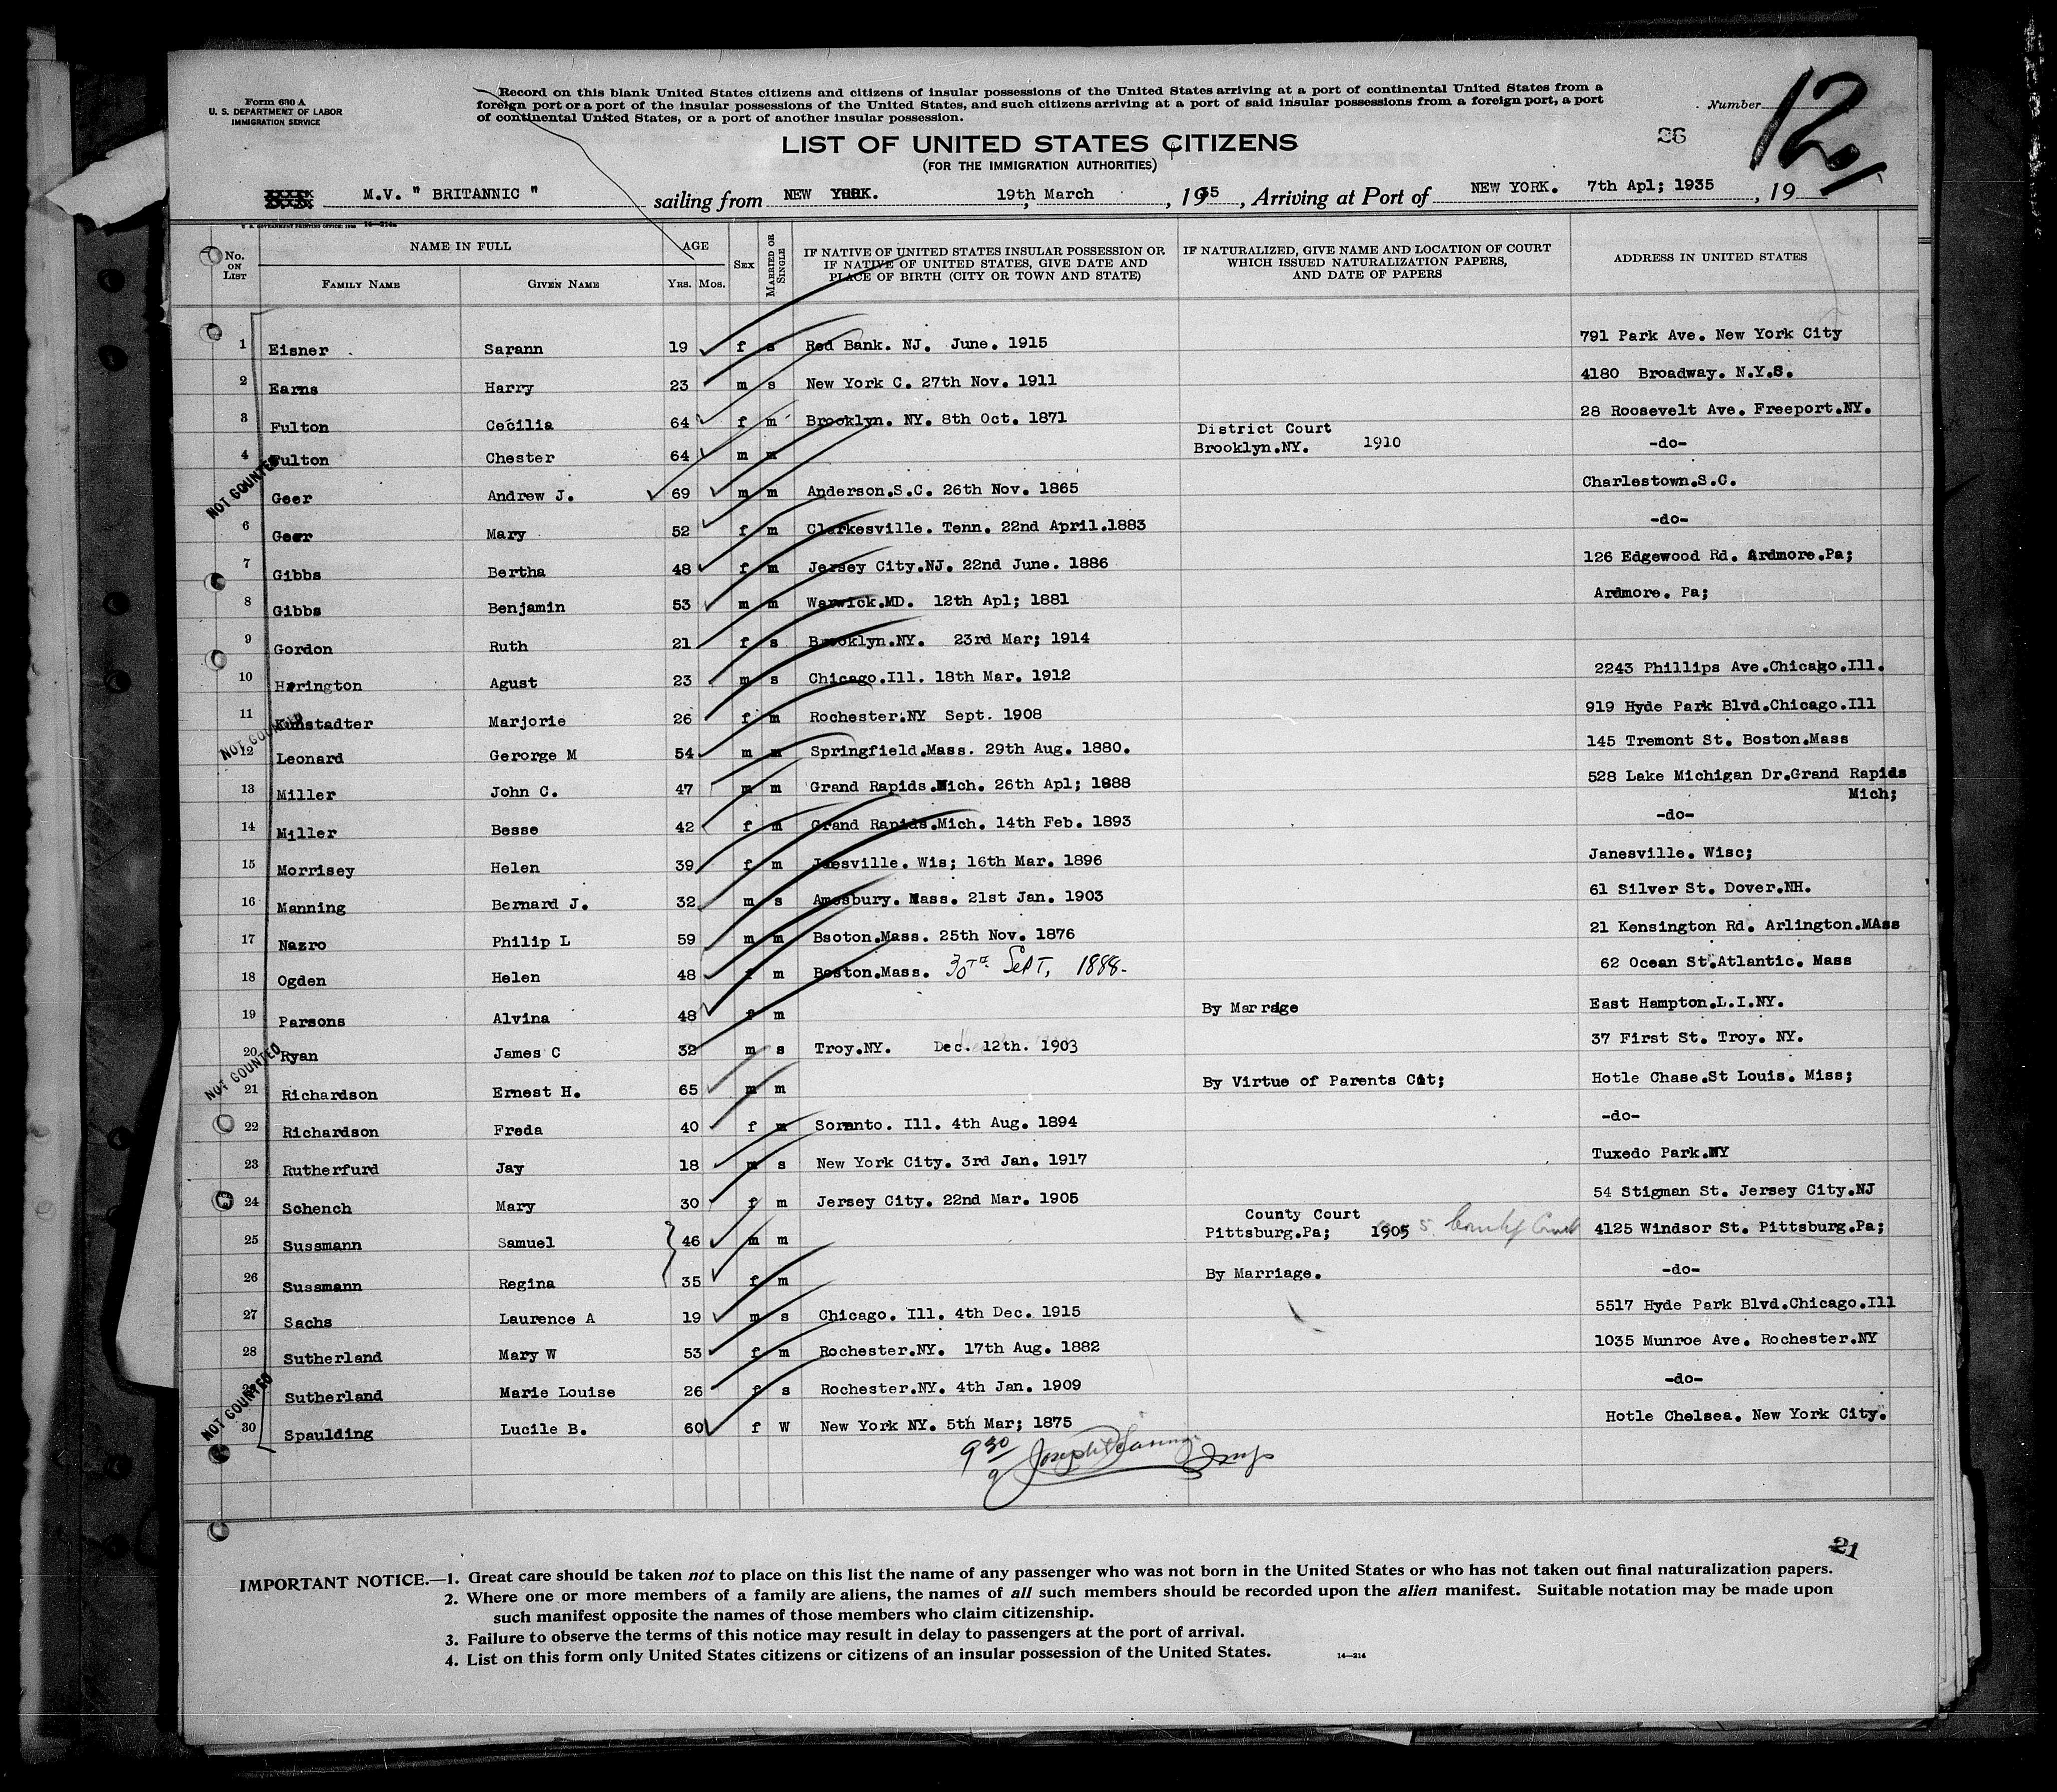 Form 630 A
U. S. DEPARTMENT OF LABOR
IMMIGRATION SERVICE
Record on this blank United States citizens and citizens of insular possessions of the United States arriving at a port of continental United States from a
foreign port or a port of the insular possessions of the United States, and such citizens arriving at a port of said insular possessions from a foreign port, a port
of continental United States, or a port of another insular possession.
Number 12
26
LIST OF UNITED STATES CITIZENS
(FOR THE IMMIGRATION AUTHORITIES)
M.V. " BRITANNIC " sailing from NEW YORK. 19th March, 1935, Arriving at Port of NEW YORK. 7th Apl; 1935, 19
U. S. GOVERNMENT PRINTING OFFICE: 14—214a
No. ON LIST NAME IN FULL AGE SEX MARRIED OR SINGLE IF NATIVE OF UNITED STATES INSULAR POSSESSION OR IF NATIVE OF UNITED STATES, GIVE DATE AND PLACE OF BIRTH (CITY OR TOWN AND STATE) IF NATURALIZED, GIVE NAME AND LOCATION OF COURT WHICH ISSUED NATURALIZATION PAPERS, AND DATE OF PAPERS ADDRESS IN UNITED STATES
FAMILY NAME GIVEN NAME YRS. MOS.
1 Eisner Sarann 19 f s Red Bank. NJ. June. 1915 791 Park Ave. New York City
2 Earns Harry 23 m s New York C. 27th Nov. 1911 4180 Broadway. N.Y.S.
3 Fulton Cecilia 64 f m Brooklyn. NY. 8th Oct. 1871 28 Roosevelt Ave. Freeport.NY.
4 Fulton Chester 64 m m District Court Brooklyn.NY. 1910 -do-
NOT COUNTED Geer Andrew J. 69 m m Anderson.S.C. 26th Nov. 1865 Charlestown.S.C.
6 Geer Mary 52 f m Clarkesville. Tenn. 22nd April.1883 -do-
7 Gibbs Bertha 48 f m Jersey City.NJ. 22nd June. 1886 126 Edgewood Rd. Ardmore.Pa;
8 Gibbs Benjamin 53 m m Warwick.MD. 12th Apl; 1881 Ardmore. Pa;
9 Gordon Ruth 21 f s Brooklyn.NY. 23rd Mar; 1914
10 Harington Agust 23 m s Chicago.Ill. 18th Mar. 1912 2243 Phillips Ave.Chicago.Ill.
11 Kunstadter Marjorie 26 f m Rochester.NY Sept. 1908 919 Hyde Park Blvd.Chicago.Ill
NOT COUNTED 12 Leonard Gerorge M 54 m m Springfield.Mass. 29th Aug. 1880. 145 Tremont St. Boston.Mass
13 Miller John C. 47 m m Grand Rapids.Mich. 26th Apl; 1888 528 Lake Michigan Dr.Grand Rapids Mich;
14 Miller Besse 42 f m Grand Rapids.Mich. 14th Feb. 1893 -do-
15 Morrisey Helen 39 f m Jnesville. Wis; 16th Mar. 1896 Janesville. Wisc;
16 Manning Bernard J. 32 m s Amesbury. Mass. 21st Jan. 1903 61 Silver St. Dover.NH.
17 Nazro Philip L 59 m m Bsoton.Mass. 25th Nov. 1876 21 Kensington Rd. Arlington.MAss
18 Ogden Helen 48 f m Boston.Mass. 30TH SEPT, 1888- 62 Ocean St.Atlantic. Mass
19 Parsons Alvina 48 f m By Marrage East Hampton.L.I.NY.
20 Ryan James C 32 m s Troy.NY. Dec. 12th. 1903 37 First St. Troy. NY.
NOT COUNTED 21 Richardson Ernest H. 65 m m By Virtue of Parents Cit; Hotle Chase.St Louis. Miss;
22 Richardson Freda 40 f m Soranto. Ill. 4th Aug. 1894 -do-
23 Rutherfurd Jay 18 m s New York City. 3rd Jan. 1917 Tuxedo Park.NY
24 Schench Mary 30 f m Jersey City. 22nd Mar. 1905 54 Stigman St. Jersey City.NJ
25 Sussmann Samuel 46 m m County Court Pittsburg.Pa; 1905 County Court 4125 Windsor St. Pittsburg.Pa;
26 Sussmann Regina 35 f m By Marriage. -do-
27 Sachs Laurence A 19 m s Chicago. Ill. 4th Dec. 1915 5517 Hyde Park Blvd.Chicago.Ill
28 Sutherland Mary W 53 f m Rochester.NY. 17th Aug. 1882 1035 Munroe Ave. Rochester.NY
NOT COUNTED Sutherland Marie Louise 26 f s Rochester.NY. 4th Jan. 1909 -do-
30 Spaulding Lucile B. 60 f W New York NY. 5th Mar; 1875 Hotle Chelsea. New York City.
930 Joseph Insp
21
IMPORTANT NOTICE.—1. Great care should be taken not to place on this list the name of any passenger who was not born in the United States or who has not taken out final naturalization papers.
2. Where one or more members of a family are aliens, the names of all such members should be recorded upon the alien manifest. Suitable notation may be made upon
such manifest opposite the names of those members who claim citizenship.
3. Failure to observe the terms of this notice may result in delay to passengers at the port of arrival.
4. List on this form only United States citizens or citizens of an insular possession of the United States. 14—214